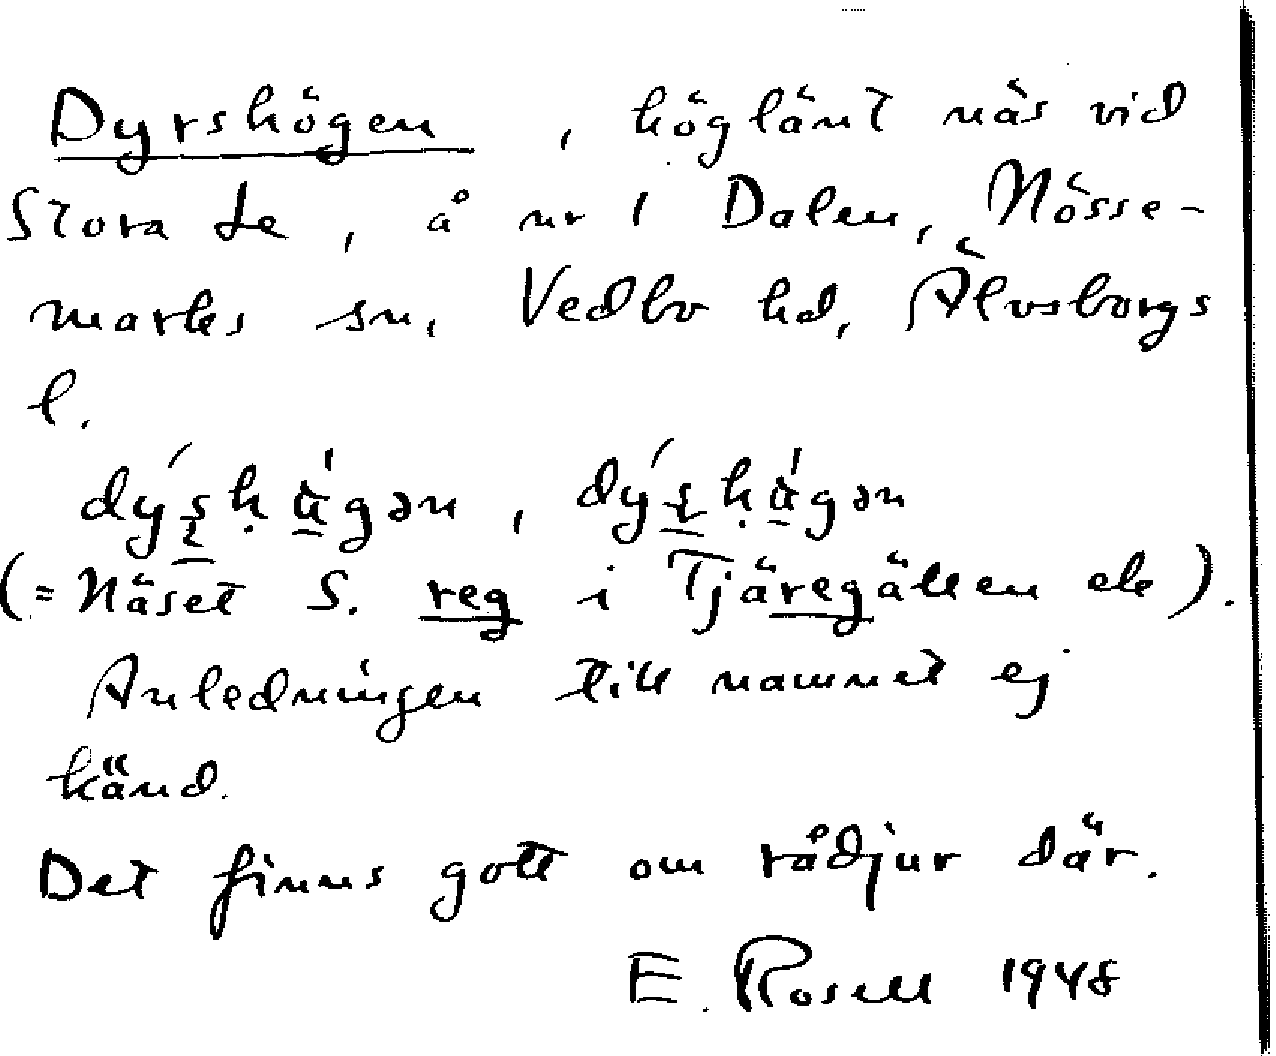 Dyrshögen, höglänt näs vid
Stora Le, å nr 1 Dalen, Nösse-
marks sn, Vedbo hd, Älvsborgs
l.
(= Näset S. reg i Tjäregällen ek).
Anledningen till namnet ej
känd.
Det finns gott om rådjur där.
E. Rosell 1948